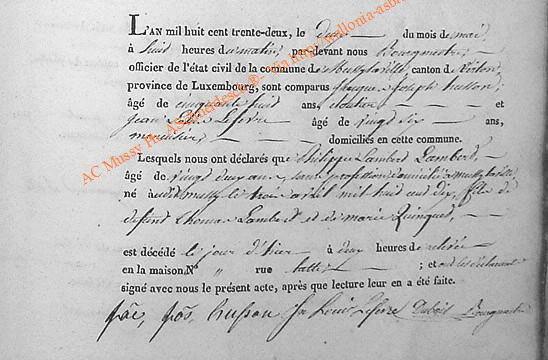 L'AN mil huit cent trente-deux, le deux du mois de mai,
à huit heures du matin, par-devant nous Bourgmestre
officier de l'état civil de la commune de Mussy la ville, canton de Virton,
province de Luxembourg, sont comparus Jacques Joseph husson,
âgé de cinquante huit ans, et
Jean Louis Lefevre âgé de vingt six ans,
menuisier, domiciliés en cette commune.
Lesquels nous ont déclarés que Philippe Lambert Lambert,
âgé de vingt deux ans, sans profession domicilié à mussy la ville
né audit mussy le trois avril mil huit cent dix, fils de
defunt thomas Lambert et de marie
est décédé le jour d'hier à deux heures de relevée
en la maison N° " rue ; et ont les déclarants
signé avec nous le présent acte, après que lecture leur en a été faite.
husson Jn Louis Lefevre Bourgmestre
AC Mussy